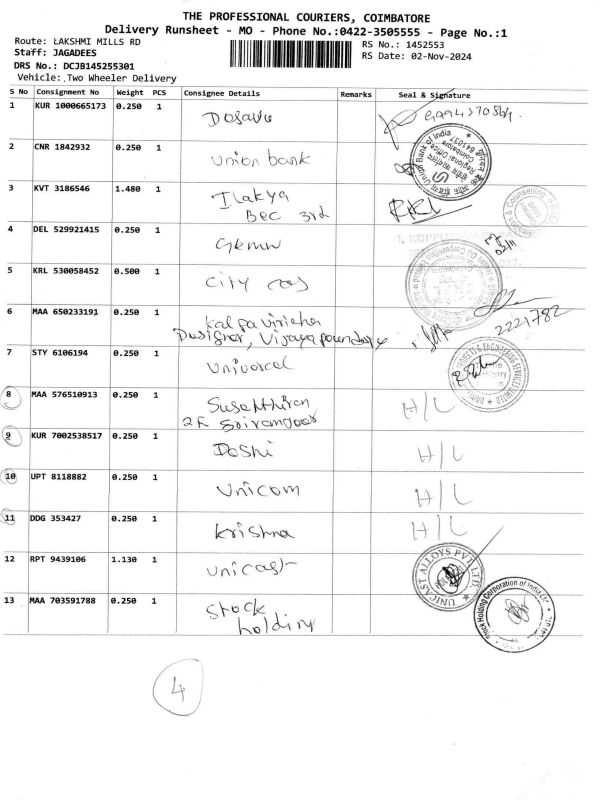 THE PROFESSIONAL COURIERS, COIMBATORE
Delivery Runsheet - MO - Phone No.:0422-3505555 - Page No.:1
Route: LAKSHMI MILLS RD
RS No.: 1452553
Staff: JAGADEES
RS Date: 02-Nov-2024
DRS No.: DCJB145255301
Vehicle: Two Wheeler Delivery
S No Consignment No Weight PCS Consignee Details Remarks Seal & Signature
1 KUR 1000665173 0.250 1
2 CNR 1842932 0.250 1 Union bank
Union Bank of India
Regional Office
Coimbatore
641037
3 KVT 3186546 1.480 1 Ilakya
Bec 3rd
4 DEL 529921415 0.250 1
5 KRL 530058452 0.500 1 City
6 MAA 650233191 0.250 1
Designer, Vijaya
2221782
7 STY 6106194 0.250 1
8 MAA 576510913 0.250 1 H/L
9 KUR 7002538517 0.250 1 Doshi H/L
10 UPT 8118882 0.250 1 Unicom H/L
11 DDG 353427 0.250 1 Krishna H/L
12 RPT 9439106 1.130 1 Unicast
UNICAST ALLOYS PVT. LTD.
13 MAA 703591788 0.250 1 Stock
holding
Stock Holding Corporation of India Ltd
4